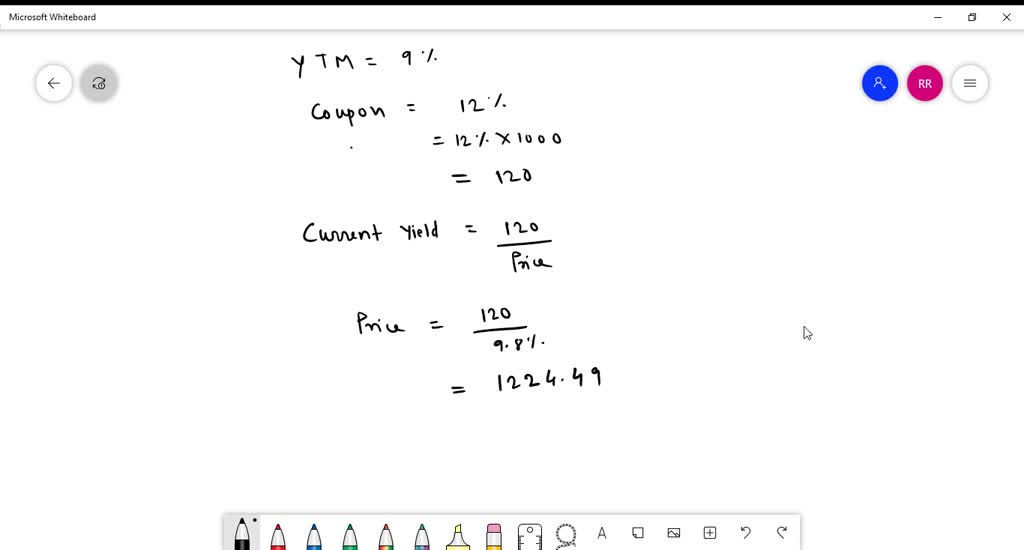 Microsoft Whiteboard
YTM = 9%
Coupon = 12%
= 12% × 1000
= 120
Current Yield = 120
Price
Price = 120
9.8%.
= 1224.49
RR
A